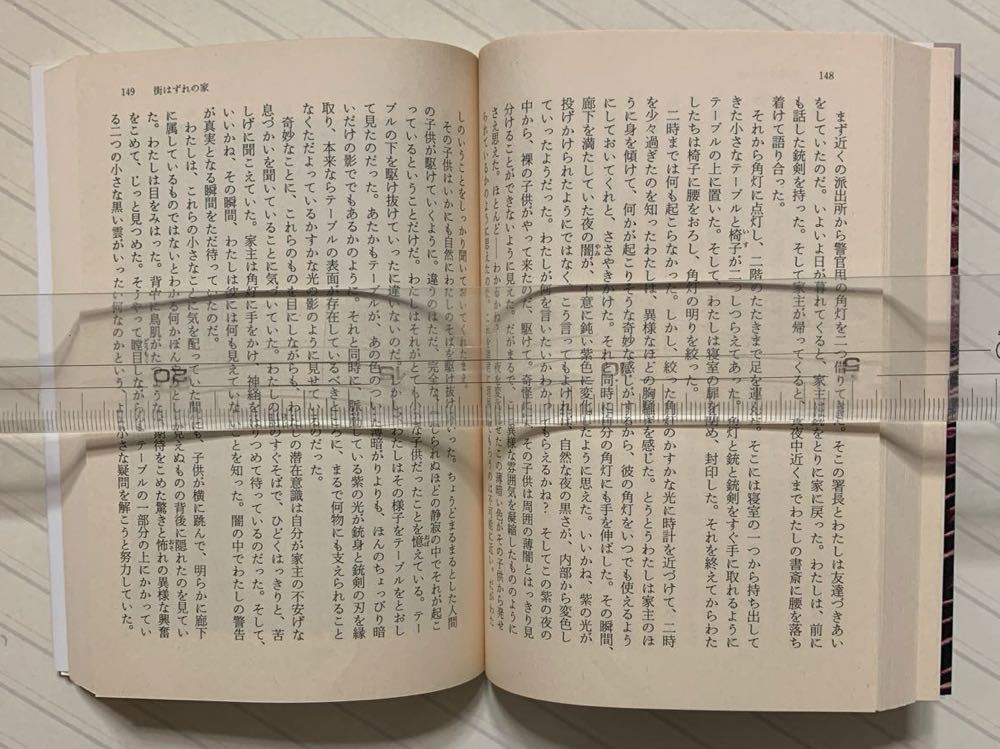 148
まず近くの派出所から警官用の角灯を二つ借りてきた。そこの署長とわたしは友達づきあい
をしていたのだ。いよいよ日が暮れてくると、家主は銃をとりに家に戻った。わたしは、前に
も話した銃剣を持った。そして家主が帰ってくると、真夜中近くまでわたしの書斎に腰を落ち
着けて語り合った。
それから角灯に点灯し、二階のたたきまで足を運んだ。そこには寝室の一つから持ち出して
きた小さなテーブルと椅子が二つしつらえてあった。角灯と銃と銃剣をすぐ手に取れるように
テーブルの上に置いた。そして、わたしは寝室の扉を閉め、封印した。それを終えてからわた
したちは椅子に腰をおろし、角灯の明りを絞った。
二時までは何も起こらなかった。しかし、絞った角灯のかすかな光に時計を近づけて、二時
を少々過ぎたのを知ったわたしは、異様なほどの胸騒ぎを感じた。とうとうわたしは家主のほ
うに身を傾けて、何かが起こりそうな奇妙な感じがするから、彼の角灯をいつでも使えるよう
にしておいてくれと、ささやきかけた。それと同時に自分の角灯にも手を伸ばした。その瞬間、
廊下を満たしていた夜の闇が、不意に鈍い紫色に変化したように思えた。いいかね、紫の光が
投げかけられたようにではなく、こう言ってもよければ、自然な夜の黒さが、内部から変色し
ていったようだった。わたしが何を言いたいかわかってもらえるかね？　そしてこの紫の夜の
中から、裸の子供がやって来たのだ、駆けて。奇怪にも、その子供は周囲の薄闇とはっきり見
分けることができないように見えた。だがまるで、
さえ思えた。ほとんど――わかるかね？――夜を変化させたこの薄暗い色がその子供から発せ
149　街はずれの家
しのいうことをしっかり聞いておいてくれたまえ。
その子供はいかにも自然にわたしのそばを駆け抜けていった。ちょうどまるまるとした人間
の子供が駆けていくように。違うのはただ、完全な、信じられぬほどの静寂の中でそれが起こ
っているということだけだ。わたしはそれがとても小さな子供だったことを憶えている。テー
ブルの下を駆け抜けていったに違いないのだ。しかしわたしはその様子をテーブルをとおし
て見たのだった。あたかもテーブルが、あの色のついた薄暗がりよりも、ほんのちょっぴり暗
いだけの影ででもあるかのように。それと同時に、脈動している紫の光が銃身と銃剣の刃を縁
取り、本来ならテーブルの表面が存在しているべきところに、まるで何物にも支えられること
なくただよっているかすかな光の影のように見せているのだった。
奇妙なことに、これらのものを目にしながらも、わたしの潜在意識は自分が家主の不安げな
息づかいを聞いていることに気づいていた。わたしのすぐそばで、ひどくはっきりと、苦
しげに聞こえていた。家主は角灯に手をかけ、神経をはりつめて待っているのだった。そして、
いいかね、その瞬間、わたしは彼には何も見えていないことを知った。闇の中でわたしの警告
が真実となる瞬間をただ待っていたのだ。
わたしは、これらの小さなことに気を配っていた間にも、子供が横に跳んで、明らかに廊下
に属しているものではないとわかる何かぼんやりとしか見えぬものの背後に隠れたのを見てい
た。わたしは目をみはった。背中も鳥肌がたつような、期待をこめた驚きと怖れの異様な興奮
をこめて、じっと見つめた。そうやって瞠目しながら、テーブルの一部分の上にかかってい
る二つの小さな黒い雲がいったい何なのかという、より小さな疑問を解こうと努力していた。